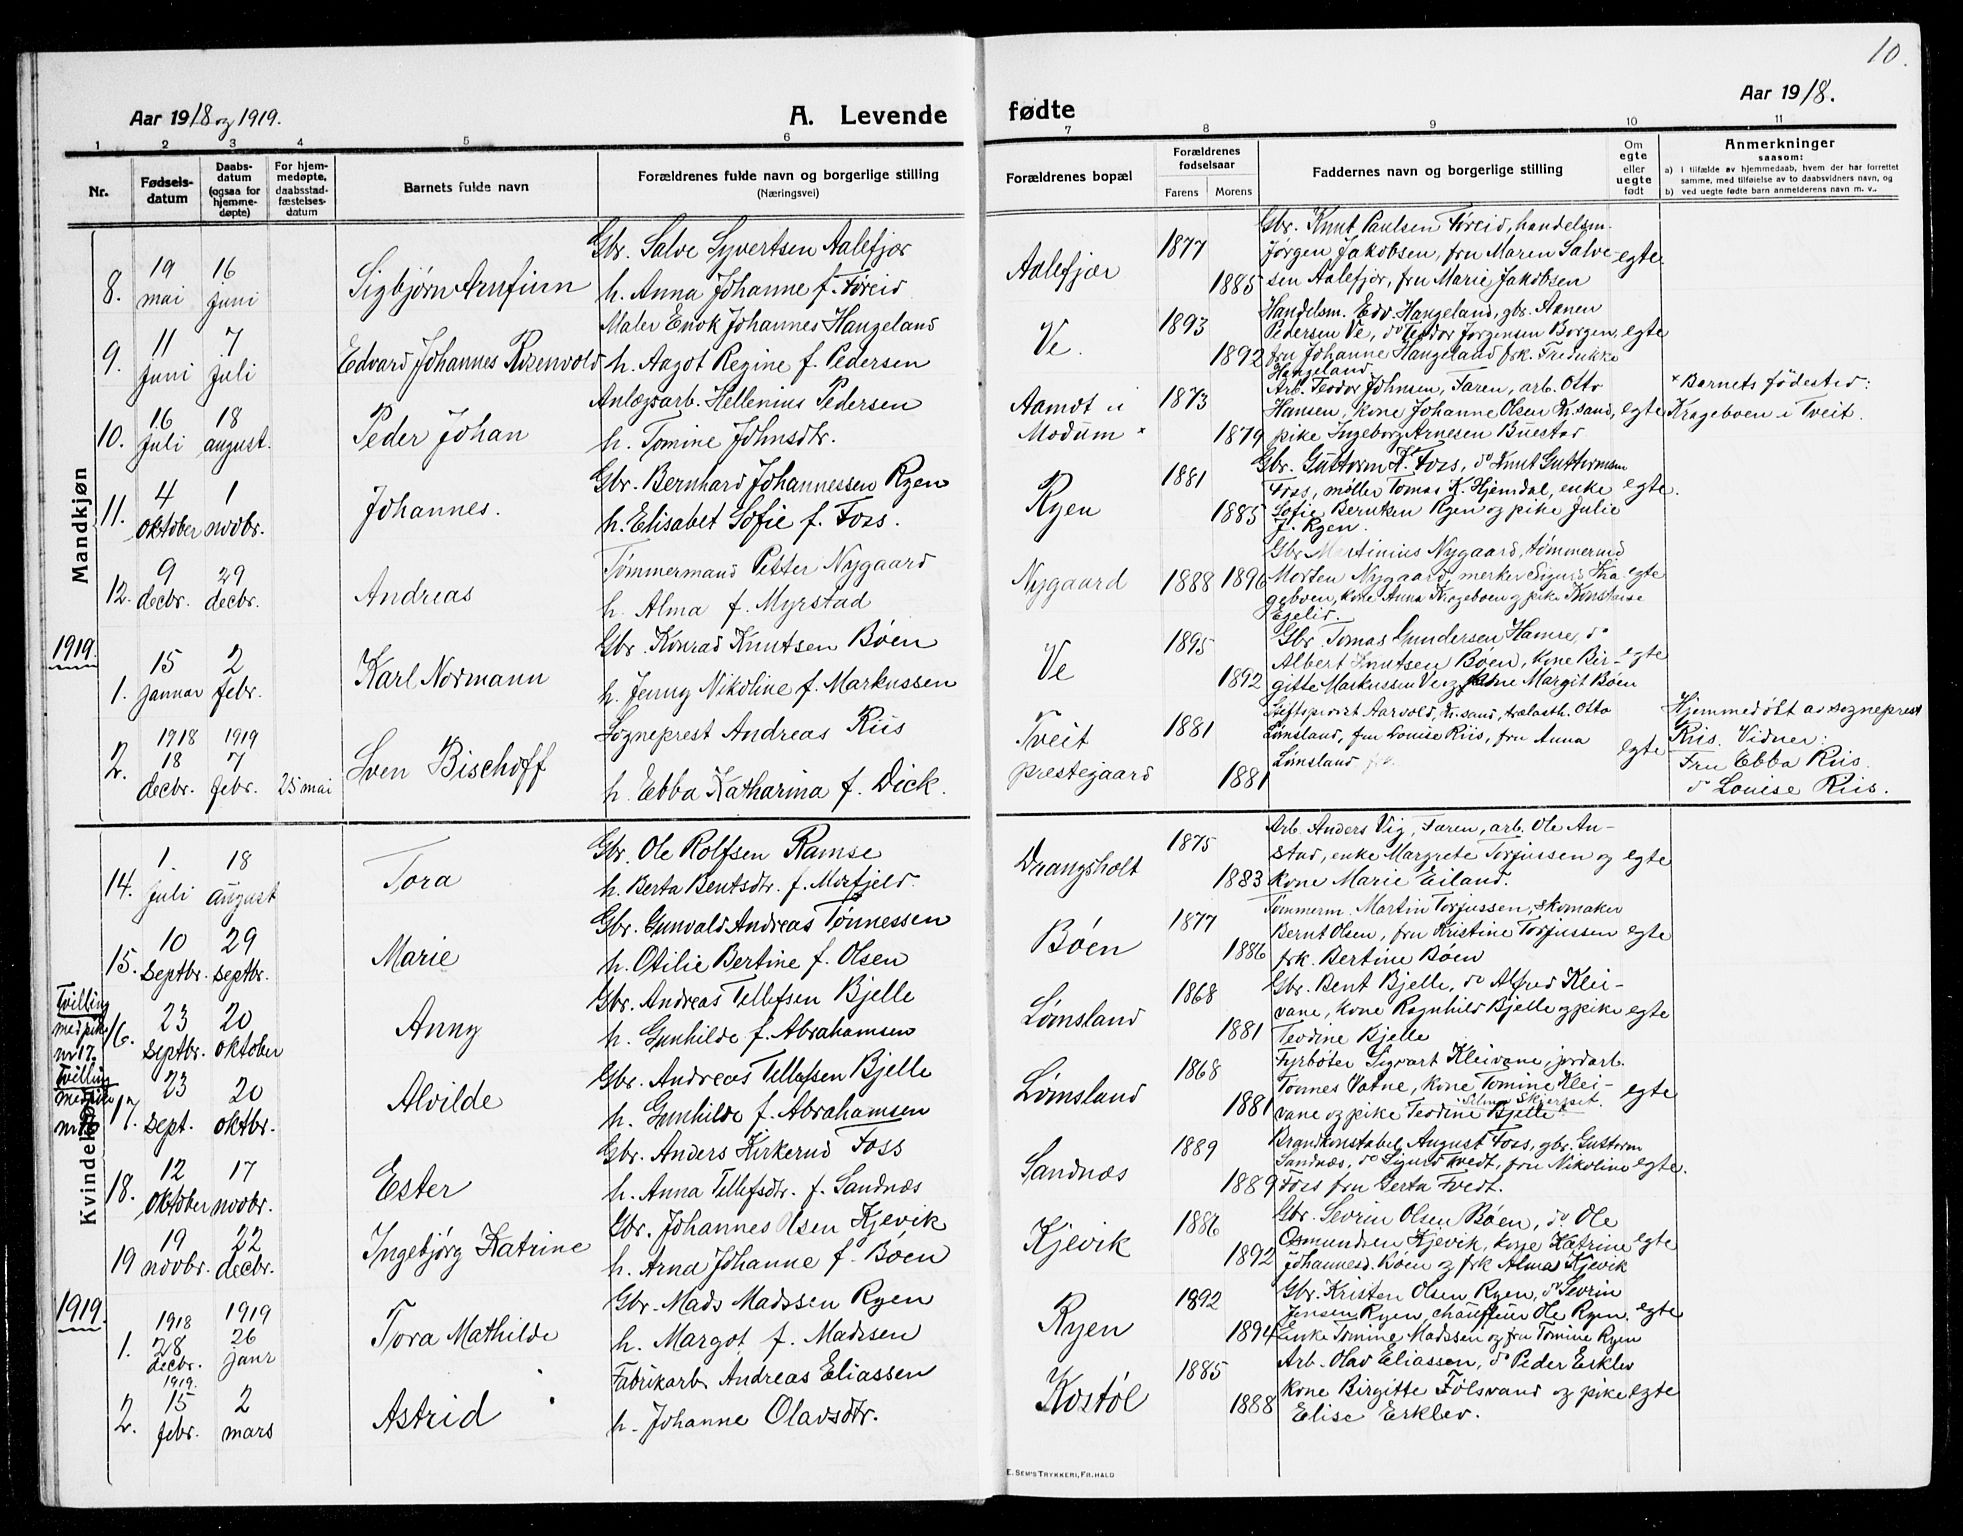 10.
Aar 1918 og 1919.
A. Levende
fødte
Aar 1918.
1 2 3 4 5 6 7 8 9 10 11
Nr.
Fødsels-
datum
Daabs-
datum
(ogsaa for
hjemme-
døpte)
For hjem-
medøpte,
daabsstad-
fæstelses-
datum
Barnets fulde navn
Forældrenes fulde navn og borgerlige stilling
(Næringsvei)
Forældrenes bopæl
Forældrenes
fødselsaar
Farens Morens
Faddernes navn og borgerlige stilling
Om
egte
eller
uegte
født
Anmerkninger
saasom:
a) I tilfælde av hjemmedaab, hvem der har forrettet
samme, med tilføielse av to daabsvidners navn, og
b) ved uegte fødte barn anmelderens navn m. v..
Mandkjøn
8.
19
mai
16
juni
Sigbjørn Arnfinn
Gbr. Salve Syvertsen Aalefjær
h. Anna Johanne f. Føreid
Aalefjær
1877
1885
Gbr. Knut Paulsen Føreid, handelsm.
Jørgen Jakobsen, fru Maren Salve-
sen Aalefjær, fru Marie Jakobsen
egte.
9.
11
juni
7
juli
Edvard Johannes Rosenvold
Maler Enok Johannes Hangeland
h. Aagot Regine f. Pedersen
Ve.
1893
1892
Handelsm. Edv. Hangeland, gbr. Aanen
Pedersen Ve, do Teodor Jørgensen Borgen,
fru Johanne Hangeland frk. Fredrikke
Hangeland.
egte
10.
16
juli
18
august.
Peder Johan
Anlægsarb. Hellenius Pedersen
h. Tomine Johnsdtr.
Aamot i
Modum x
1873
1879
Arb. Teodor Johnsen, Faren, arb. Otto
Hansen, kone Johanne Olsen Kr.sand,
pike Ingeborg Arnesen Buestad
egte
x Barnets fødested:
Krageboen i Tveit.
11.
4
oktober
1
novbr.
Johannes.
Gbr. Bernhard Johannessen Ryen
h. Elisabet Sofie f. Foss.
Ryen
1881
1885
Gbr. Guttorm K. Foss, do Knut Guttormsen
Foss, møller Tomas K. Hjemdal, enke
Sofie Berntsen Ryen og pike Julie
J. Ryen.
egte.
12.
9
decbr.
29
decbr.
Andreas
Tømmermand Petter Nygaard
h. Alma f. Myrstad
Nygaard
1888
1896
Gbr Martinius Nygaard, tømmermd
Morten Nygaard, merker Sigurd Kra-
geboen, kone Anna Krageboen og pike Konstanse
Egelid.
egte
1919.
1.
15
januar
2
febr.
Karl Normann
Gbr. Konrad Knutsen Bøen
h. Jenny Nikoline f. Markussen
Ve
1895
1892
Gbr. Tomas Gundersen Hamre, do
Albert Knutsen Bøen, kone Bir-
gitte Markussen Ve og Margit Bøen
egte
2.
1918
18
decbr.
1919
7
febr.
25 mai
Sven Bischoff
Sogneprest Andreas Riis
h. Ebba Katharina f. Dick.
Tveit
prestegaard
1881
1881
Stiftsprovst Aarvold, Kr.sand, trælasth. Otto
Lømsland, fru Louise Riis, fru Anna
Lømsland
egte
Hjemmedøbt av sogneprest
Riis. Vidner:
Fru Ebba Riis.
do Louise Riis.
Kvindekjøn
14.
1.
juli
18
august
Tora
Gbr. Ole Rolfsen Ramse
h. Berta Bentsdtr. f. Mosfjeld.
Drangsholt
1875
1883
Arb. Anders Vig, Faren, arb. Ole An-
stad, enke Margrete Torjussen og
kone Marie Eiland.
egte
15.
10
septbr.
29
septbr.
Marie
Gbr. Gunvald Andreas Tønnessen
h. Otilie Bertine f. Olsen
Bøen
1877
1886
Tømmerm. Martin Torjussen, skomaker
Bernt Olsen, fru Kristine Torjussen
frk. Bertine Bøen
egte
Tvilling
med pike
nr 17.
16.
23
septbr.
20
oktober
Anny
Gbr. Andreas Tellefsen Bjelle
h. Gunhilde f. Abrahamsen
Lømsland
1868
1881
Gbr. Bent Bjelle, do Alfred Klei-
vane, kone Ragnhild Bjelle og pike
Teodine Bjelle
egte
Tvilling
med pike
nr 16
17.
23
sept.
20
oktbr.
Alvilde
Gbr. Andreas Tellefsen Bjelle
h. Gunhilde f. Abrahamsen
Lømsland
1868
1881
Fyrbøter Sigvart Kleivane, jordarb.
Tønnes Vatne, kone Tomine Klei-
vane og pike Teodine Bjelle
egte
18.
12
oktober
17
novbr.
Ester
Gbr. Anders Kirkerud Foss
h. Anna Tellefsdtr. f. Sandnæs
Sandnæs
1889
1889
Brandkonstabel August Foss, gbr. Guttorm
Sandnæs, do Sigurd Tvedt, fru Nikoline
Foss fru Berta Tvedt.
egte.
19
19
novbr.
22
decbr.
Ingebjørg Katrine
Gbr. Johannes Olsen Kjevik
h. Arna Johanne f. Bøen
Kjevik
1886
1892
Gbr. Sevrin Olsen Bøen, do Ole
Osmundsen Kjevik, kone Katrine
Johannesd. Bøen og frk Alma Kjevik
egte
1919.
1.
1918
28
decbr.
1919
26
janr
Tora Mathilde
Gbr. Mads Madssen Ryen
h. Margot f. Madssen
Ryen
1892
1894
Gbr. Kristen Olsen Ryen, do Sevrin
Jensen Ryen, chauffeur Ole Ryen.
Enke Tomine Madssen og fru Tomine Ryen
egte
2.
1919.
15
febr.
2
mars
Astrid
Fabrikarb Andreas Eliassen
h. Johanne Olavsdtr.
Kostøl
1885
1888
Arb. Olav Eliassen, do Peder Esklev
kone Birgitte Følsvand og pike
Elise Erklev.
egte
E. SEM'S TRYKKERI, FR.HALD